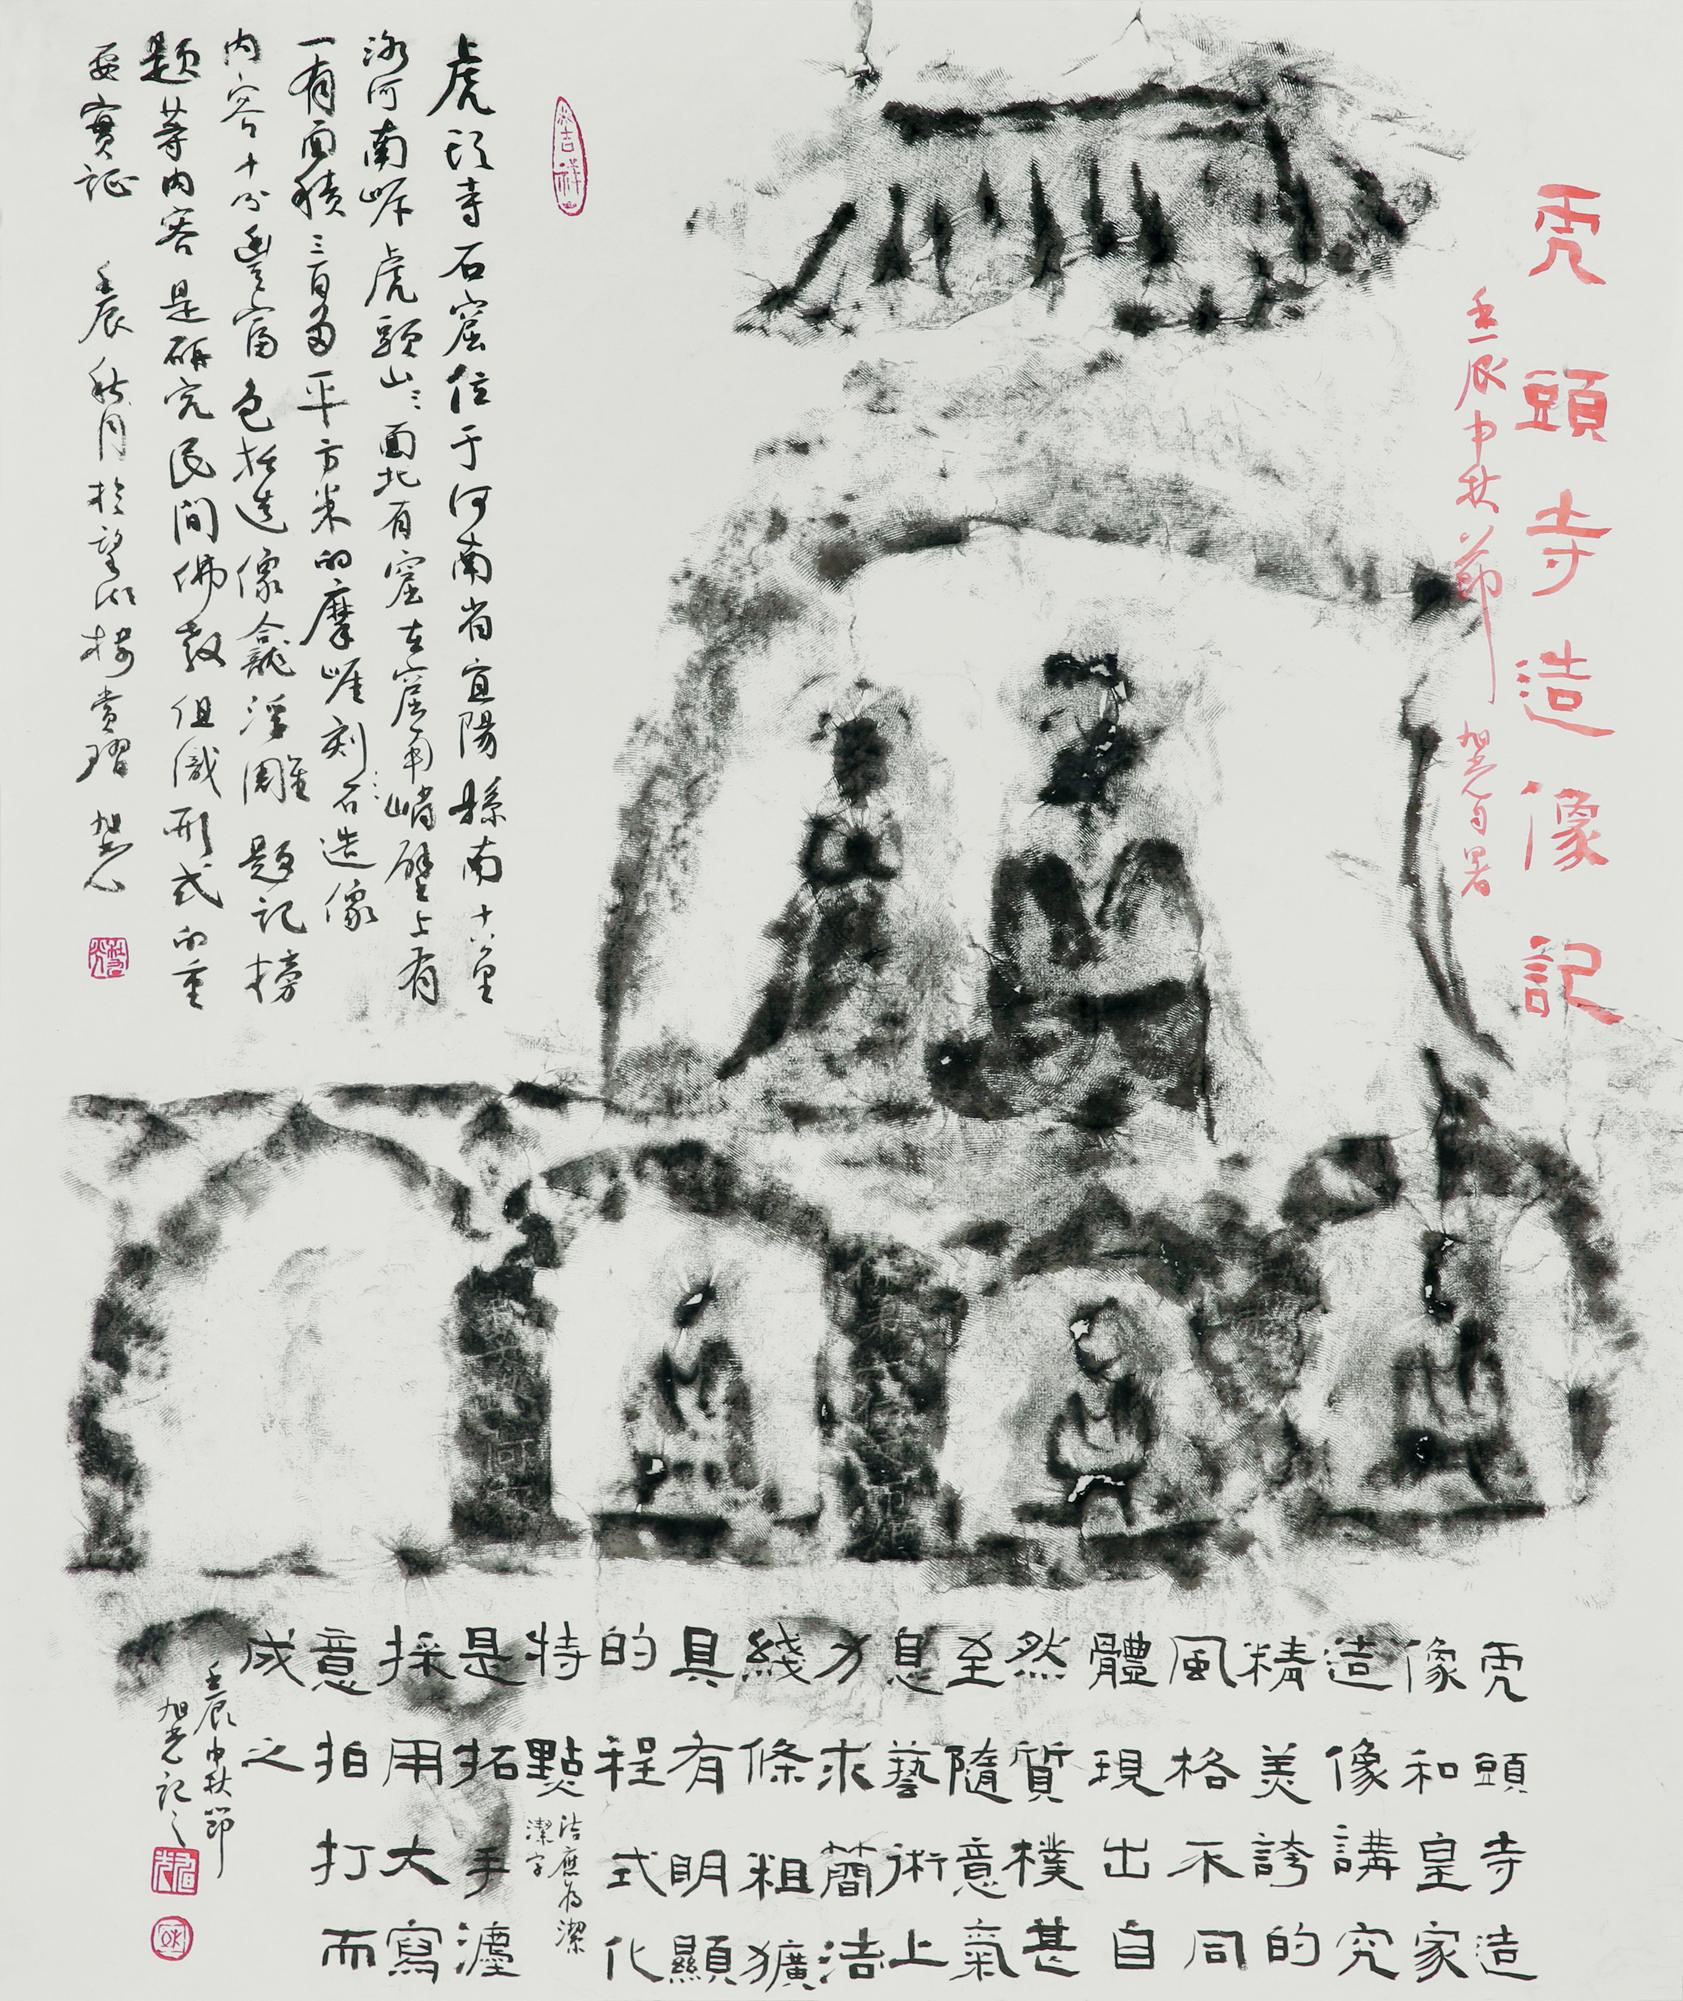 虎頭寺造像記
壬辰中秋節 旭光自署
虎頭寺石窟位于河南省宜陽縣南十八里
洛河南岸虎頭山〻面北有窟在窟南峭壁上有
一有面積三百多平方米的摩崖刻石造像
内容十分豐富包括造像龕浮雕題記榜
題等内容是研究民間佛教組織形式的重
要實証 壬辰秋月於望湖樓賞 旭光
吉祥
虎頭寺造
像和皇家
造像講究
精美誇的
風格不同
體現出自
然質樸甚
至隨意氣
息藝術上
力求簡洁
綫條粗獷
具有明顯
的程式化
特點
洁應為潔
潔字
是拓手灋
採用大寫
意拍打而
成之
壬辰中秋節
旭光記之